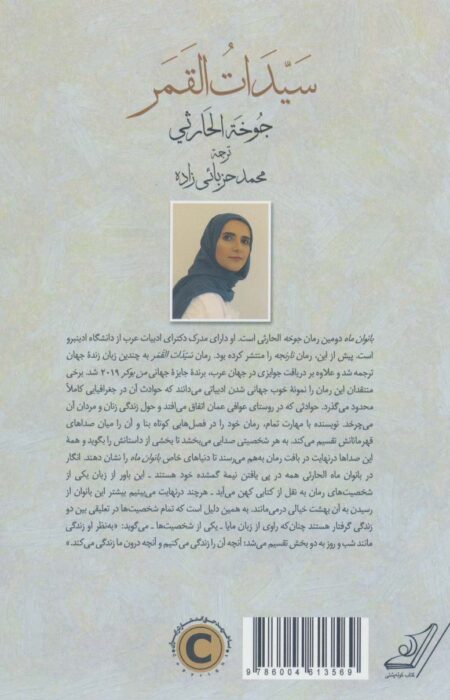 سَيِّدَاتُ القَمَر
جُوخَة الحَارثي
ترجمهٔ
محمد حزبائی‌زاده
بانوان ماه دومین رمان جوخه الحارثی است. او دارای مدرک دکترای ادبیات عرب از دانشگاه ادینبرو
است. پیش از این، رمان نارنجه را منتشر کرده بود. رمان سَیِّدَات القَمَر به چندین زبان زندهٔ جهان
ترجمه شد و علاوه بر دریافت جوایزی در جهان عرب، برندهٔ جایزهٔ جهانی من بوکر ۲۰۱۹ شد. برخی
منتقدان این رمان را نمونهٔ خوب جهانی شدن ادبیاتی می‌دانند که حوادث آن در جغرافیایی کاملاً
محدود می‌گذرد. حوادثی که در روستای عوافی عمان اتفاق می‌افتد و حول زندگی زنان و مردان آن
می‌چرخد. نویسنده با مهارت تمام، رمان خود را در فصل‌هایی کوتاه بنا و آن را میان صداهای
قهرمانانش تقسیم می‌کند. به هر شخصیتی صدایی می‌بخشد تا بخشی از داستانش را بگوید و همهٔ
این صداها درنهایت در بافت رمان به‌هم می‌رسند تا دنیاهای خاص بانوان ماه را نشان دهند. انگار
در بانوان ماه الحارثی همه در پی یافتن نیمهٔ گمشده خود هستند ـ این باور از زبان یکی از
شخصیت‌های رمان به نقل از کتابی کهن می‌آید ـ هرچند درنهایت می‌بینیم بیشتر این بانوان از
رسیدن به آن بهشت خیالی درمی‌مانند. به همین دلیل است که تمام شخصیت‌ها در تعلیقی بین دو
زندگی گرفتار هستند چنان‌که راوی از زبان مایا ـ یکی از شخصیت‌ها ـ می‌گوید: «به‌نظر او زندگی
مانند شب و روز به دو بخش تقسیم می‌شد؛ آنچه آن را زندگی می‌کنیم و آنچه درون ما زندگی می‌کند.»
C
9 786004 613569
کتاب کوله‌پشتی